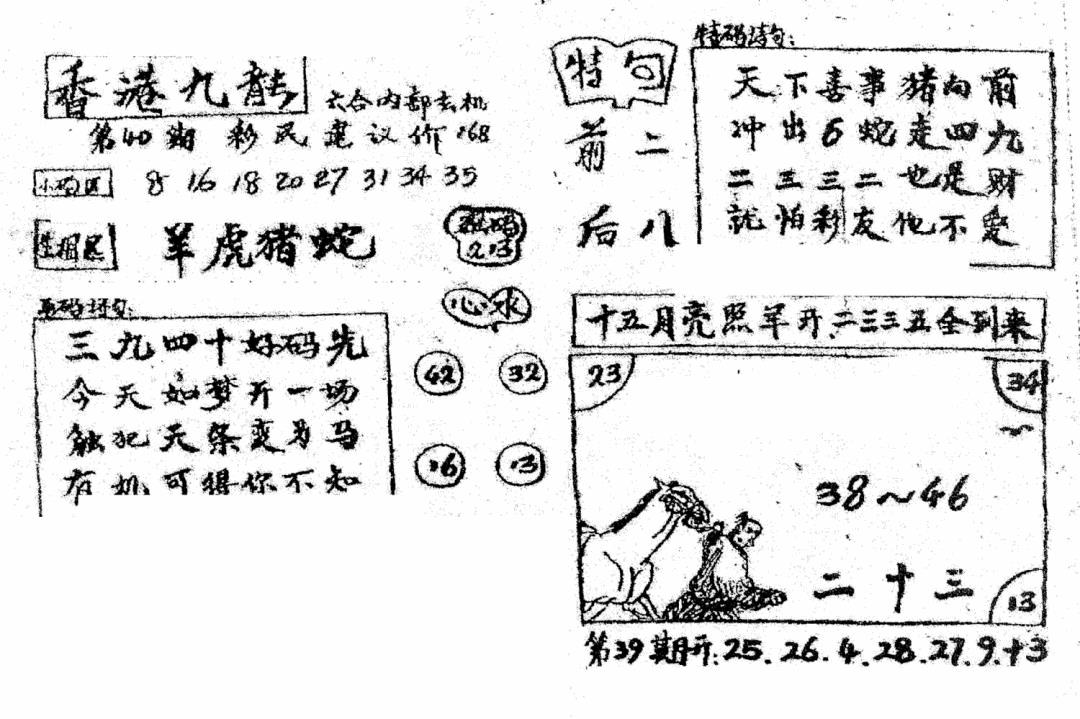 香港九龍
六合内部玄机
第40期 彩民建议价 168
小码区 8 16 18 20 27 31 34 35
生相区 羊虎猪蛇
玄码诗句:
三九四十好码先
今天如梦开一场
触犯天条变为马
有机可得你不知
213
心水
42 32
16 13
特句
前二
后八
特码诗句:
天下喜事猪向前
冲出6蛇走四九
二三三二也是财
就怕彩友他不爱
十五月亮照羊开:二三三五全到来
23 34
38~46
二十三
13
第39期开:25.26.4.28.27.9.+3